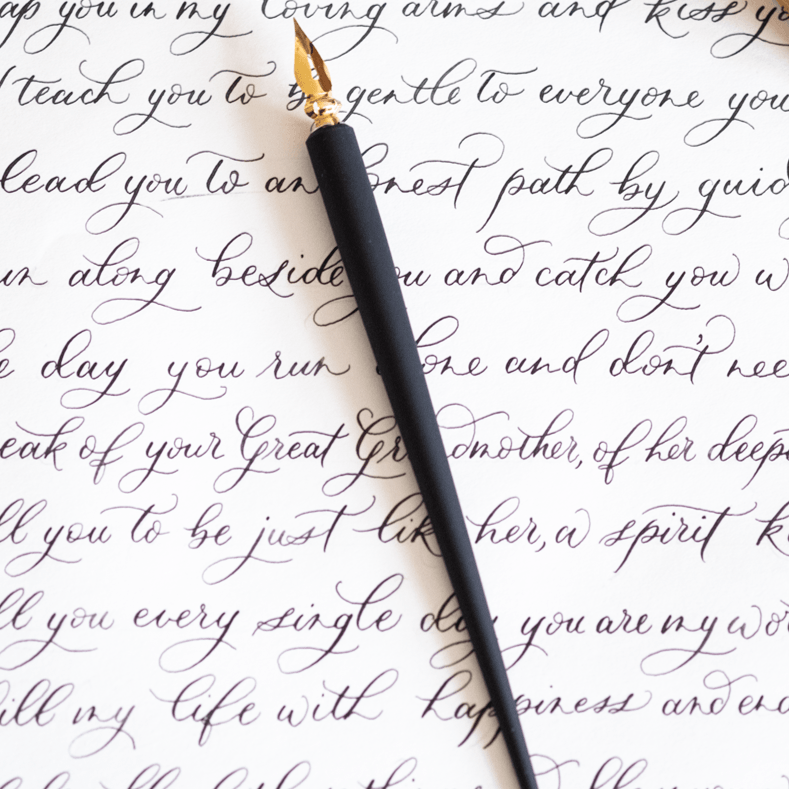 you in my loving arms and kiss
teach you to gentle to everyone you
lead you to an honest path by
along beside you and catch you
day you run alone and don't
of your Great Grandmother, of her
you to be just like her, a spirit
you every single day you are my
my life with happiness and